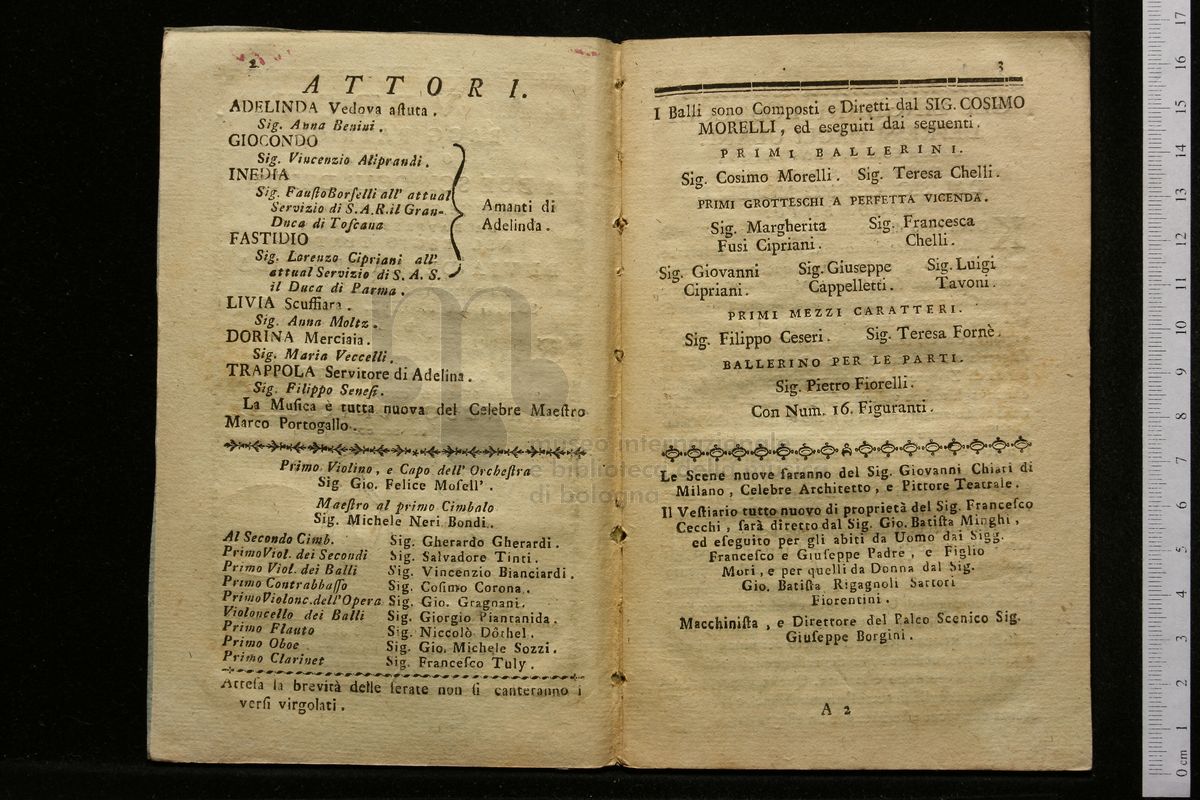 2
ATTORI.
ADELINDA Vedova aſtuta.
Sig. Anna Benini.
GIOCONDO
Sig. Vincenzio Aliprandi.
INEDIA
Sig. Fauſto Borſelli all' attual
Servizio di S. A. R. il Gran-
Duca di Toſcana
FASTIDIO
Sig. Lorenzo Cipriani all'
attual Servizio di S. A. S.
il Duca di Parma.
Amanti di
Adelinda.
LIVIA Scuffiara.
Sig. Anna Moltz.
DORINA Merciaia.
Sig. Maria Veccelli.
TRAPPOLA Servitore di Adelina.
Sig. Filippo Seneſi.
La Muſica è tutta nuova del Celebre Maeſtro
Marco Portogallo.
Primo Violino, e Capo dell' Orcheſtra
Sig. Gio. Felice Moſell'.
Maeſtro al primo Cimbalo
Sig. Michele Neri Bondi.
Al Secondo Cimb. Sig. Gherardo Gherardi.
Primo Viol. dei Secondi Sig. Salvadore Tinti.
Primo Viol. dei Balli Sig. Vincenzio Bianciardi.
Primo Contrabbaſſo Sig. Coſimo Corona.
Primo Violonc. dell'Opera Sig. Gio. Gragnani.
Violoncello dei Balli Sig. Giorgio Piantanida.
Primo Flauto Sig. Niccolò Dôthel.
Primo Oboe Sig. Gio. Michele Sozzi.
Primo Clarinet Sig. Franceſco Tuly.
Atteſa la brevità delle ſerate non ſi canteranno i
verſi virgolati.
3
I Balli sono Composti e Diretti dal SIG. COSIMO
MORELLI, ed eseguiti dai seguenti.
PRIMI BALLERINI.
Sig. Cosimo Morelli. Sig. Teresa Chelli.
PRIMI GROTTESCHI A PERFETTA VICENDA.
Sig. Margherita Sig. Francesca
Fusi Cipriani. Chelli.
Sig. Giovanni Sig. Giuseppe Sig. Luigi
Cipriani. Cappelletti. Tavoni.
PRIMI MEZZI CARATTERI.
Sig. Filippo Ceseri. Sig. Teresa Fornè.
BALLERINO PER LE PARTI.
Sig. Pietro Fiorelli.
Con Num. 16. Figuranti.
Le Scene nuove ſaranno del Sig. Giovanni Chiari di
Milano, Celebre Architetto, e Pittore Teatrale.
Il Veſtiario tutto nuovo di proprietà del Sig. Franceſco
Cecchi, ſarà diretto dal Sig. Gio. Batiſta Minghi,
ed eſeguito per gli abiti da Uomo dai Sigg.
Franceſco e Giuſeppe Padre, e Figlio
Mori, e per quelli da Donna dal Sig.
Gio. Batiſta Rigagnoli Sartori
Fiorentini.
Macchiniſta, e Direttore del Palco Scenico Sig.
Giuſeppe Borgini.
A 2
museo internazionale
e biblioteca della musica
di bologna
0 cm 1 2 3 4 5 6 7 8 9 10 11 12 13 14 15 16 17